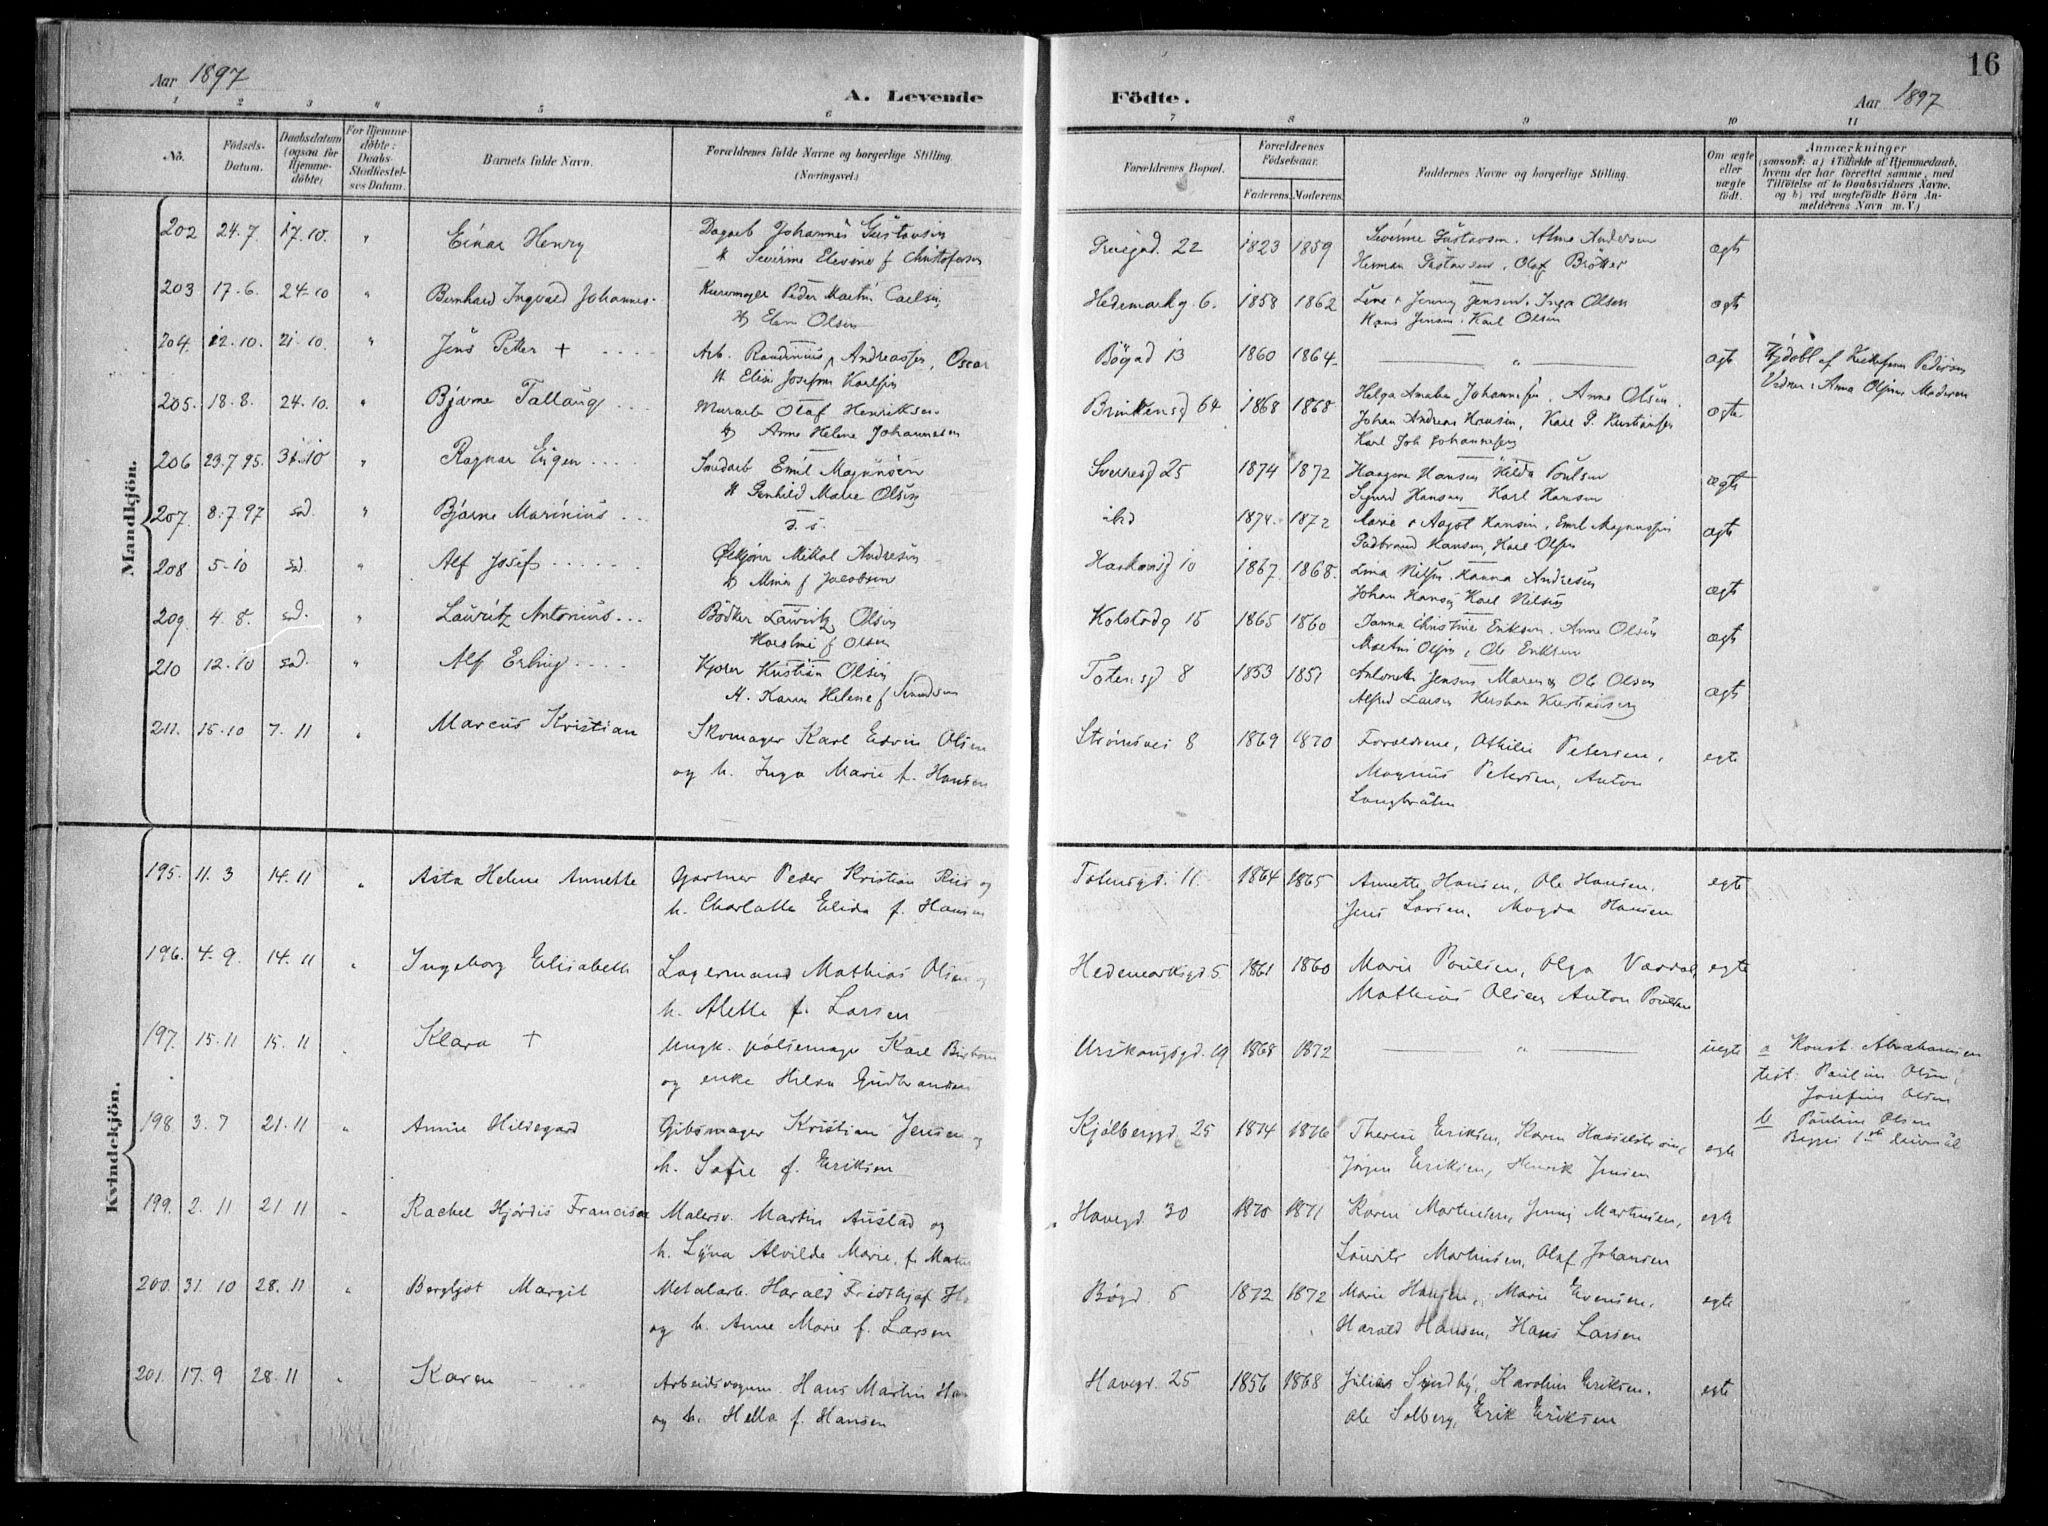 Aar 1897
A. Levende
Födte.
Aar 1897
16
1 2 3 4 5 6 7 8 9 10 11
No.
Födsels-
Datum.
Daabsdatum
(ogsaa for
Hjemme-
döbte)
For Hjemme-
döbte:
Daabs-
Stadfæstel-
ses Datum.
Barnets fulde Navn.
Forældrenes fulde Navne og borgerlige Stilling.
(Næringsvei.)
Forældrenes Bopæl.
Forældrenes
Födselsaar.
Faderens. Moderens.
Faddernes Navne og borgerlige Stilling.
Om ægte
eller
uægte
født.
Anmærkninger
(saasom: a) i Tilfælde af Hjemmedaab,
hvem der har forrettet samme, med
Tilföielse af to Daabsvidners Navne,
og b) ved uegtefödte Börn An-
melderens Navn m. V.)
Mandkjön.
202 24.7. 17.10. " Einar Henry Dagarb Johannes Gustavsen 22 1823 1859 Severine Gustavsen. Alma Andersen ægte
H Severine Elevine f Christofersen Herman Gustavsen, Olaf Bröther
203 17.6. 24-10 " Bernhard Ingvald Johannes. Peder Martin Carlsen Hedemarkg 6. 1858 1862 Lene & Jenny Jensen. Inga Olsen ægte
Olsen Hans Jensen. Karl Olsen
204. 12.10. 21.10. " Jens Petter + Arb. Andreassen, Oscar Bøgad 13 1860 1864 " ægte Hjdøbt af Pedersen
H Elise Josefine Karlsen Vidner: Anna Olsen
205. 18.8. 24.10. " Bjarne Murarb Olaf Henriksen Brinkensg 64 1868 1868 Helga Johannesen, Anna Olsen. ægte
Anne Helene Johannesen Johan Andreas Hansen, Karl P. Kristiansen
Karl Joh Johannesen
206 23.7.95. 31.10 " Ragnar Eugen Smedarb Emil Magnusen Sverresg 25 1874 1872 Hansen Hilda Poulsen ægte
H Gunhild Marie Olsen Sigurd Hansen Karl Hansen
207. 8.7 97 sd. " Bjarne Marinius d. s. ibid 1874. 1872 & Aagot Hansen. Emil Magnussen ægte
Gudbrand Hansen, Karl Olsen
208 5-10 sd. " Alf Josef Mikal Andresen 10 1867. 1868. Lina Nilsen. Hanna Andresen ægte
f Jacobsen Johan Hansen Karl Nilsen
209. 4.8. sd. " Lauritz Antonius Bödker Lauritz Olsen Kolstadg 15 1865 1860 Janna Christine Eriksen. Anne Olsen ægte
f Olsen Martin Olsen, Ole Eriksen
210 12.10 sd. " Alf Erling Kjører Kristian Olsen Totensg 8 1853 1851 Jensen Maren & Ole Olsen ægte
H. Karen Helene f Alfred Larsen
211. 15.10 7.11 " Marcus Kristian Skomager Karl Edvin Olsen Strömsvei 8 1869 1870 Forældrene, Othilie Petersen, egte
og h. Inga Marie f. Hansen Magnus Petersen, Anton
Langbråten
Kvindekjön.
195. 11.3 14.11 " Asta Helene Annette Gartner Peder Kristian Riis og Totensgd. 11. 1864 1865 Annette Hansen, Ole Hansen. egte
h. Charlotte Elida f. Hansen Jens Larsen. Magda Hansen
196. 4.9. 14.11 " Ingeborg Elisabeth Lagermand Mathias Olsen og Hedemarksgd 5 1861 1860 Marie Poulsen, Olga Vardal, egte
h. Alette f. Larsen Mathias Olsen Anton Poulsen
197. 15.11 15.11 " Klara + Ungk. pölsemager Karl Urskougsgd. 19 1868 1872 " uegte a Konst. Abrahamsen
og enke Hilda Gudbrandsen test: Pauline Olsen,
Josefine Olsen
b Pauline Olsen
198. 3.7 21.11 " Annie Hildegard Gibsmager Kristian Jensen og Kjölberggd. 25 1874 1876 Therese Eriksen, Karen Hasselström, egte
h. Sofie f. Eriksen Jörgen Eriksen, Henrik Jensen
199. 2.11 21.11 " Rachel Hjördis Francisca Malersv. Martin Austad og Havegd. 30 1870 1871 Karen Martinsen, Jenny Martinsen, egte
h. Lyna Alvilde Marie, f. Lauritz Martinsen, Olaf Johansen
200. 31.10 28.11 " Bergljot Margit Metalarb. Harald Fridthjof Bøgd. 6 1872 1872 Marie Hansen, Marie Evensen. egte
og h. Anne Marie f. Larsen Harald Hansen, Hans Larsen
201. 17.9 28.11 " Karen Arbeidsvogm. Hans Martin Havegd. 25 1856 1868 Julius Sundby, Karoline Eriksen. egte
og h. Hella f. Hansen Ole Solberg, Erik Eriksen